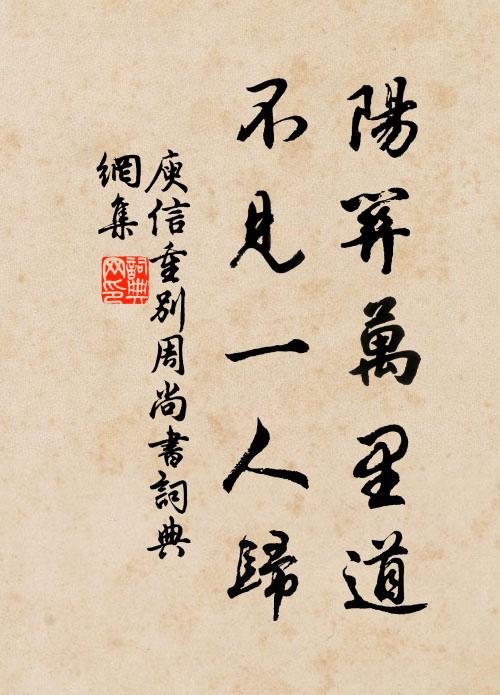 陽關萬里道
不見一人歸
庾信重別周尚書詞典
網集
詞典
网印